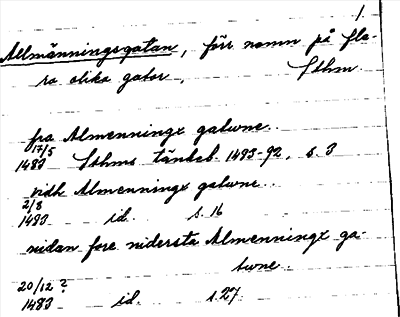 1.
Allmänningsgatan, förr namn på fle-
ra olika gator, Sthm.
fra Almenningx gatwne.
17/5
1483 Sthms tänkeb. 1483-92, s. 3
vidh Almenningx gatwne..
2/8
1483 id. s. 16
nidan fore nidersta Almenningx ga-
twne.
20/12 ?
1483 id. s. 27.